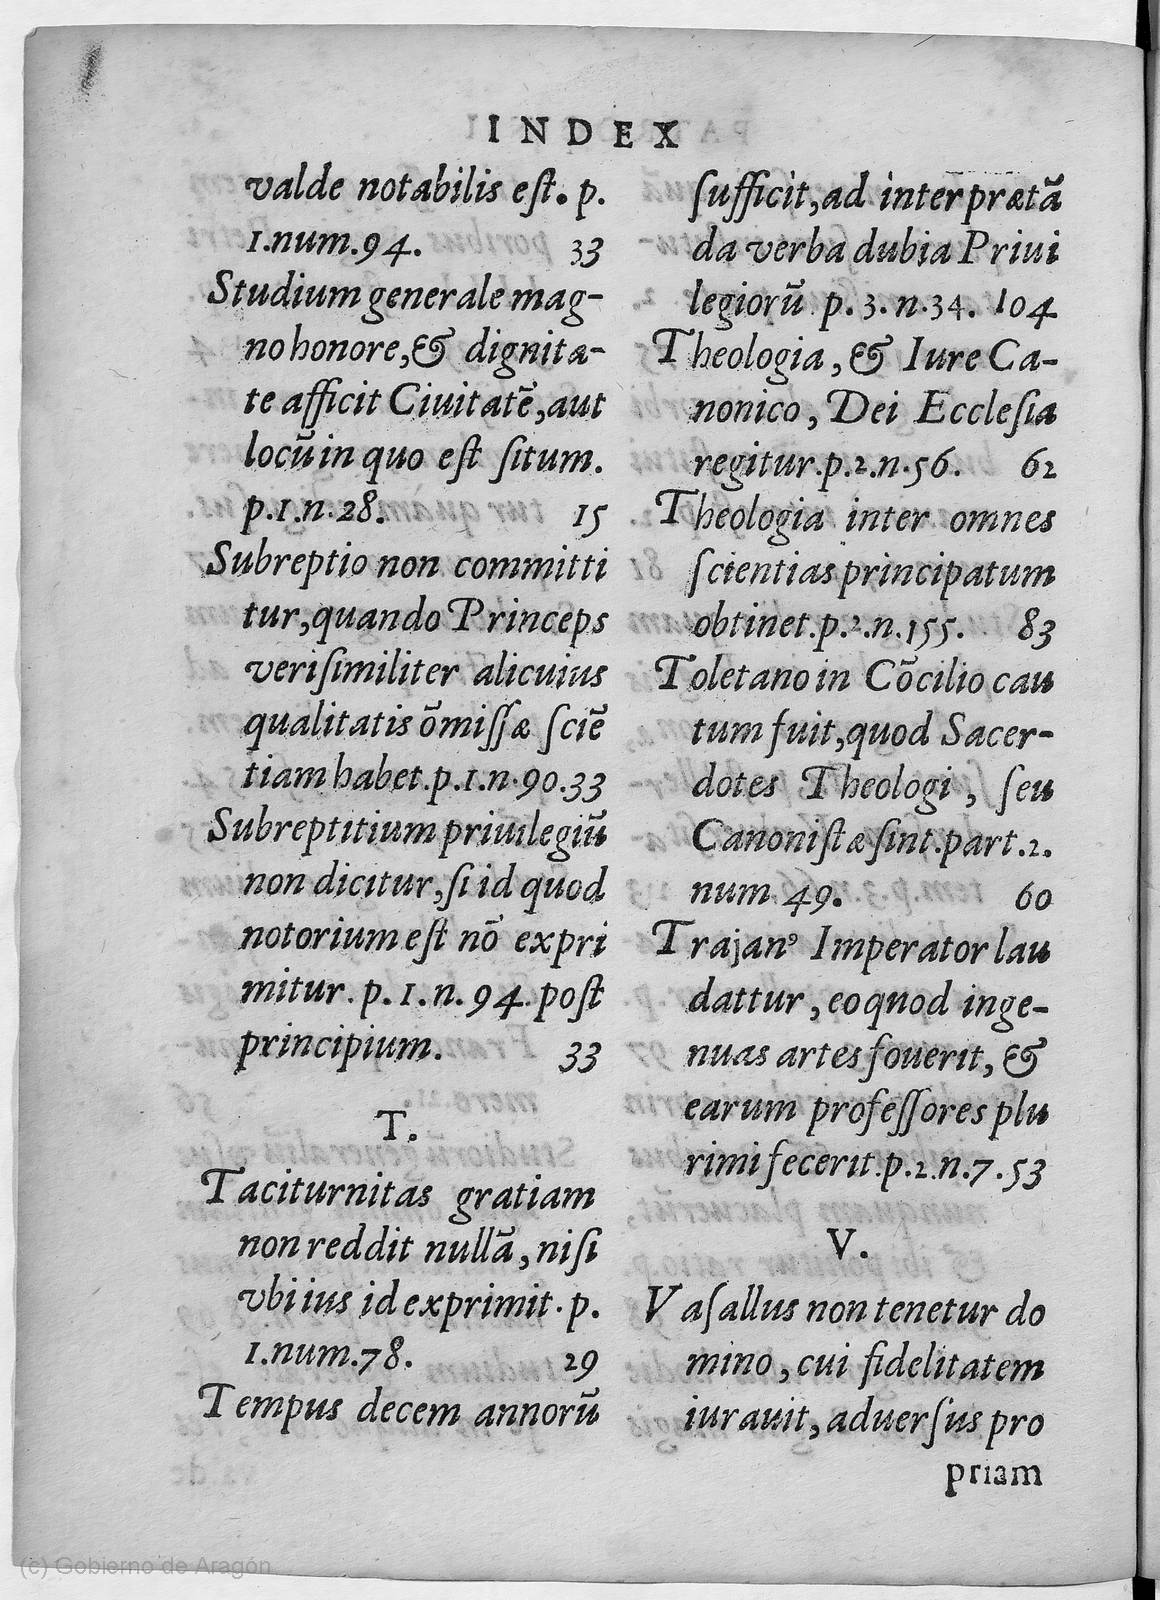 INDEX
valde notabilis eſt. p.
1.num.94. 33
Studium generale mag-
no honore,& dignita-
te afficit Ciuitatē,aut
locū in quo eſt ſitum.
p.1.n.28. 15
Subreptio non committi
tur,quando Princeps
veriſimiliter alicuius
qualitatis ōmiſſæ ſciē
tiam habet.p.1.n.90.33
Subreptitium priuilegiū
non dicitur,ſi id quod
notorium eſt nō expri
mitur. p. 1. n. 94. poſt
principium. 33
T.
Taciturnitas gratiam
non reddit nullā, niſi
vbi ius id exprimit. p.
1.num.78. 29
Tempus decem annorū
ſufficit,ad interprætā
da verba dubia Priui
legiorū p. 3. n. 34. 104
Theologia, & Iure Ca-
nonico, Dei Eccleſia
regitur.p.2.n.56. 62
Theologia inter omnes
ſcientias principatum
obtinet.p.2.n.155. 83
Toletano in Cōcilio cau
tum fuit,quod Sacer-
dotes Theologi, ſeu
Canoniſtæ ſint.part.2.
num 49. 60
Trajanꝰ Imperator lau
dattur, eo quod inge-
nuas artes fouerit, &
earum profeſſores plu
rimi fecerit.p.2.n.7.53
V.
Vaſallus non tenetur do
mino, cui fidelitatem
iurauit, aduerſus pro
priam
(c) Gobierno de Aragón